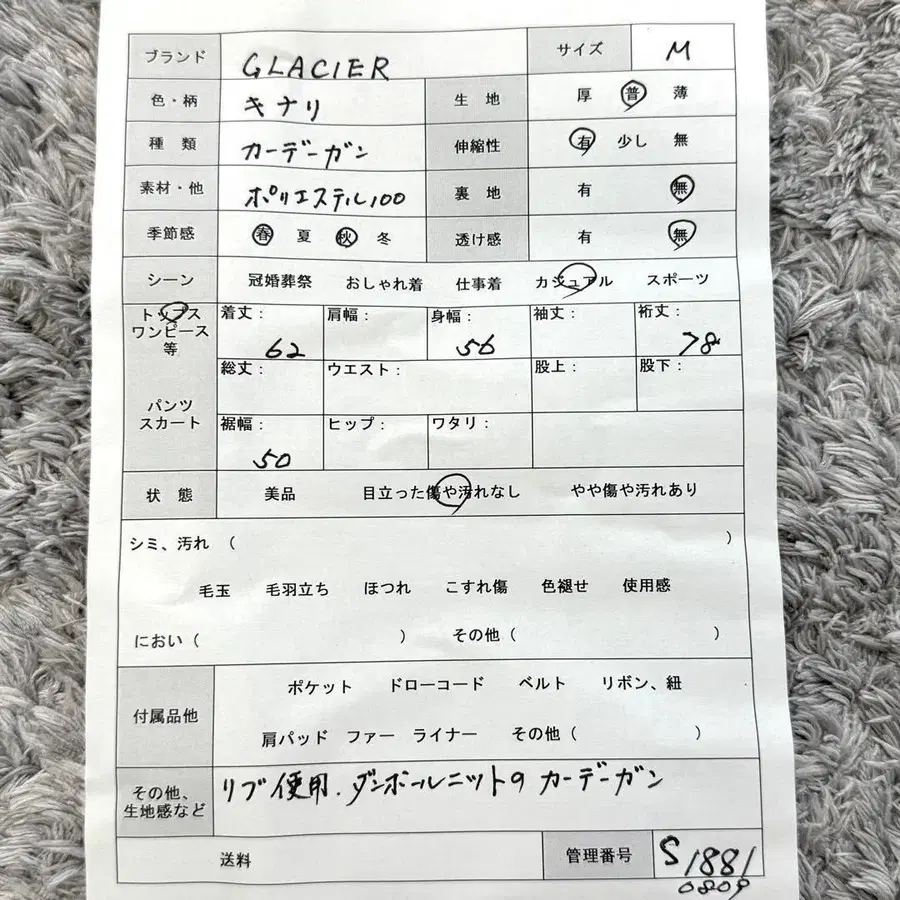 ブランド GLACIER サイズ M
色・柄 キナリ 生地 厚 普 薄
種類 カーデーガン 伸縮性 有 少し 無
素材・他 ポリエステル100 裏地 有 無
季節感 春 夏 秋 冬 透け感 有 無
シーン 冠婚葬祭 おしゃれ着 仕事着 カジュアル スポーツ
トップス
ワンピース
等
着丈: 62 肩幅: 身幅: 56 袖丈: 裄丈: 78
パンツ
スカート
総丈: ウエスト: 股上: 股下:
裾幅: 50 ヒップ: ワタリ:
状態 美品 目立った傷や汚れなし やや傷や汚れあり
シミ、汚れ ( )
毛玉 毛羽立ち ほつれ こすれ傷 色褪せ 使用感
におい ( ) その他 ( )
付属品他 ポケット ドローコード ベルト リボン、紐
肩パッド ファー ライナー その他 ( )
その他、
生地感など
リブ使用.ダンボールニットの カーデーガン
送料 管理番号 S1881
0809